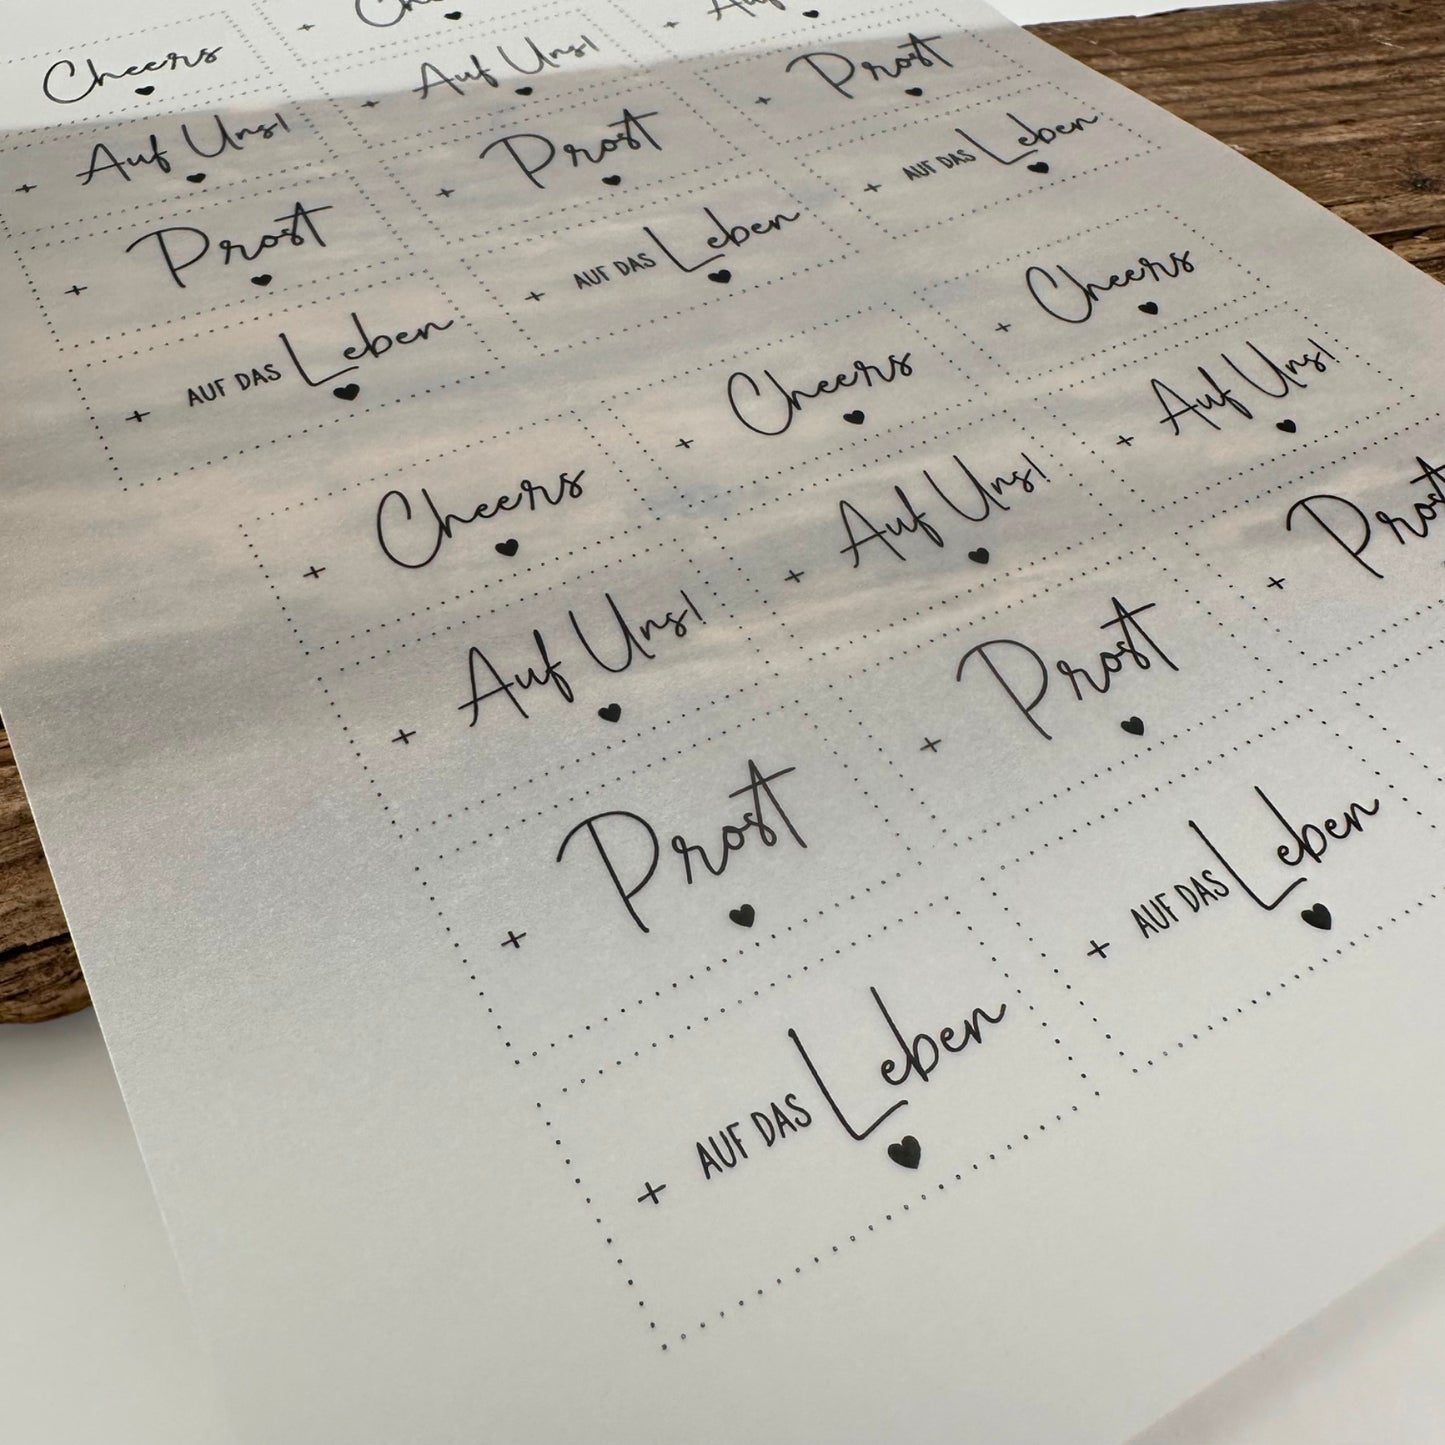 Cheers
+ Auf Uns! + Auf Uns!
+ Prost + Prost + Prost
+ AUF DAS Leben + AUF DAS Leben + AUF DAS Leben
+ Cheers + Cheers + Cheers
+ Auf Uns! + Auf Uns! + Auf Uns!
+ Prost + Prost + Prost
+ AUF DAS Leben + AUF DAS Leben